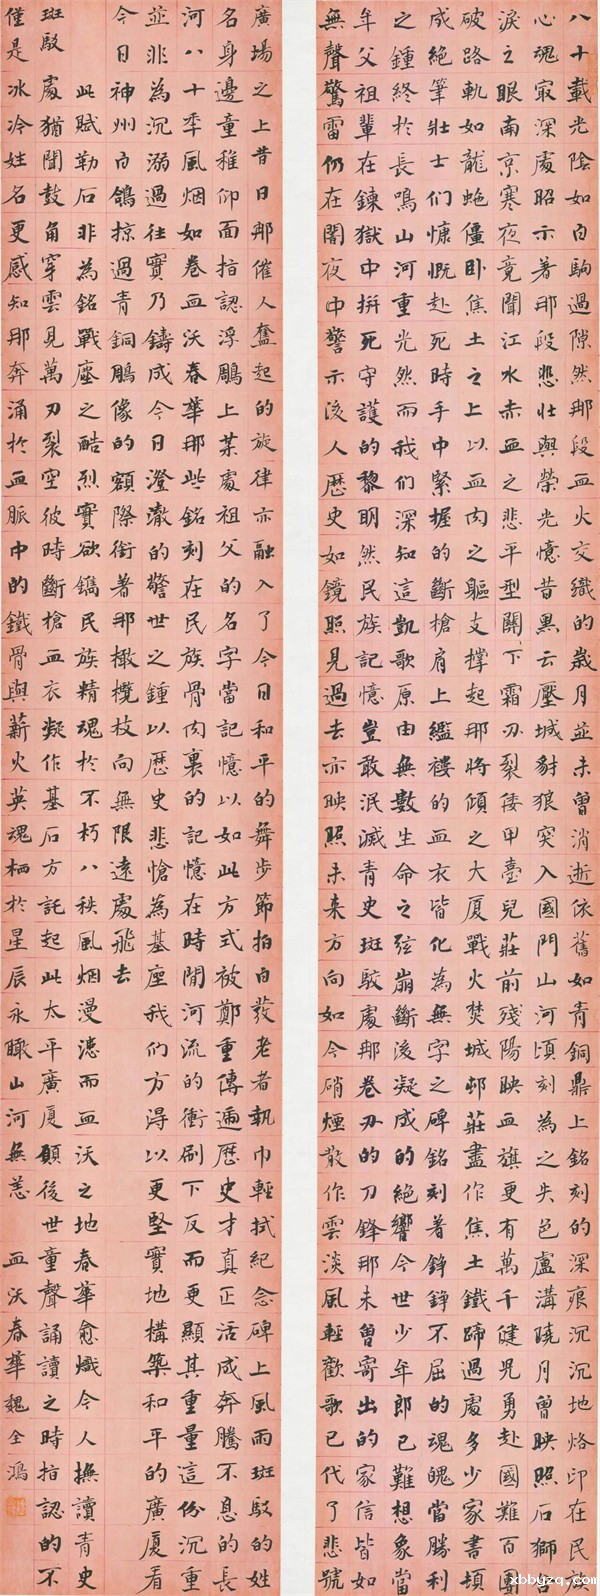 八十載光陰如白駒過隙然那段血火交織的歲月並未曾消逝依舊如青銅鼎上銘刻的深痕沉沉地烙印在民
心魂寂深處昭示著那段悲壯與榮光憶昔黑云壓城豺狼突入國門山河頃刻為之失色盧溝曉月曾映照石獅
淚之眼南京寒夜竟聞江水赤血之悲平型關下霜刃裂倭甲臺兒莊前殘陽映血旗更有萬千健兒勇赴國難百團
破路軌如龍虵僵臥焦土之上以血肉之軀支撐起那將傾之大厦戰火焚城邨莊盡作焦土鐵蹄過處多少家書頓
成絕筆壯士们慷慨赴死時手中緊握的斷槍肩上襤褸的血衣皆化為無字之碑銘刻著錚錚不屈的魂魄當勝利
之鍾終於長鳴山河重光然而我们深知這凱歌原由無數生命之弦崩斷後凝成的絕響今世少年郎已難想象當
年父祖輩在鍊獄中拼死守護的黎明然民族記憶豈敢泯滅青史斑駁處那卷刃的刀鋒那未曾寄出的家信皆如
無聲驚雷仍在闇夜中警示後人歷史如鏡照見過去亦映照未來方向如今硝煙散作雲淡風輕歡歌已代了悲號
廣場之上昔日那催人奮起的旋律亦融入了今日和平的舞步節拍白發老者執巾輕拭紀念碑上風雨斑駁的姓
名身邊童稚仰面指認浮雕上某處祖父的名字當記憶以如此方式被鄭重傳遞歷史才真正活成奔騰不息的長
河八十季風烟如卷血沃春華那些銘刻在民族骨肉裏的記憶在時間河流的衝刷下反而更顯其重量這份沉重
並非為沉溺過往實乃鑄成今日澄澈的警世之鍾以歷史悲愴為基座我们方得以更堅實地構築和平的廣厦看
今日神州白鴿掠過青銅雕像的額際銜著那橄欖枝向無限遠處飛去
此賦勒石非為銘戰塵之酷烈實欲鐫民族精魂於不朽八秩風烟漫漶而血沃之地春華愈熾今人撫讀青史
斑駁處猶聞鼓角穿雲見萬刃裂空彼時斷槍血衣凝作基石方託起此太平廣厦願後世童聲誦讀之時指認的不
僅是冰冷姓名更感知那奔涌於血脈中的鐵骨與薪火英魂栖於星辰永瞰山河無恙 血沃春華魏全鴻
xbbyzq.com